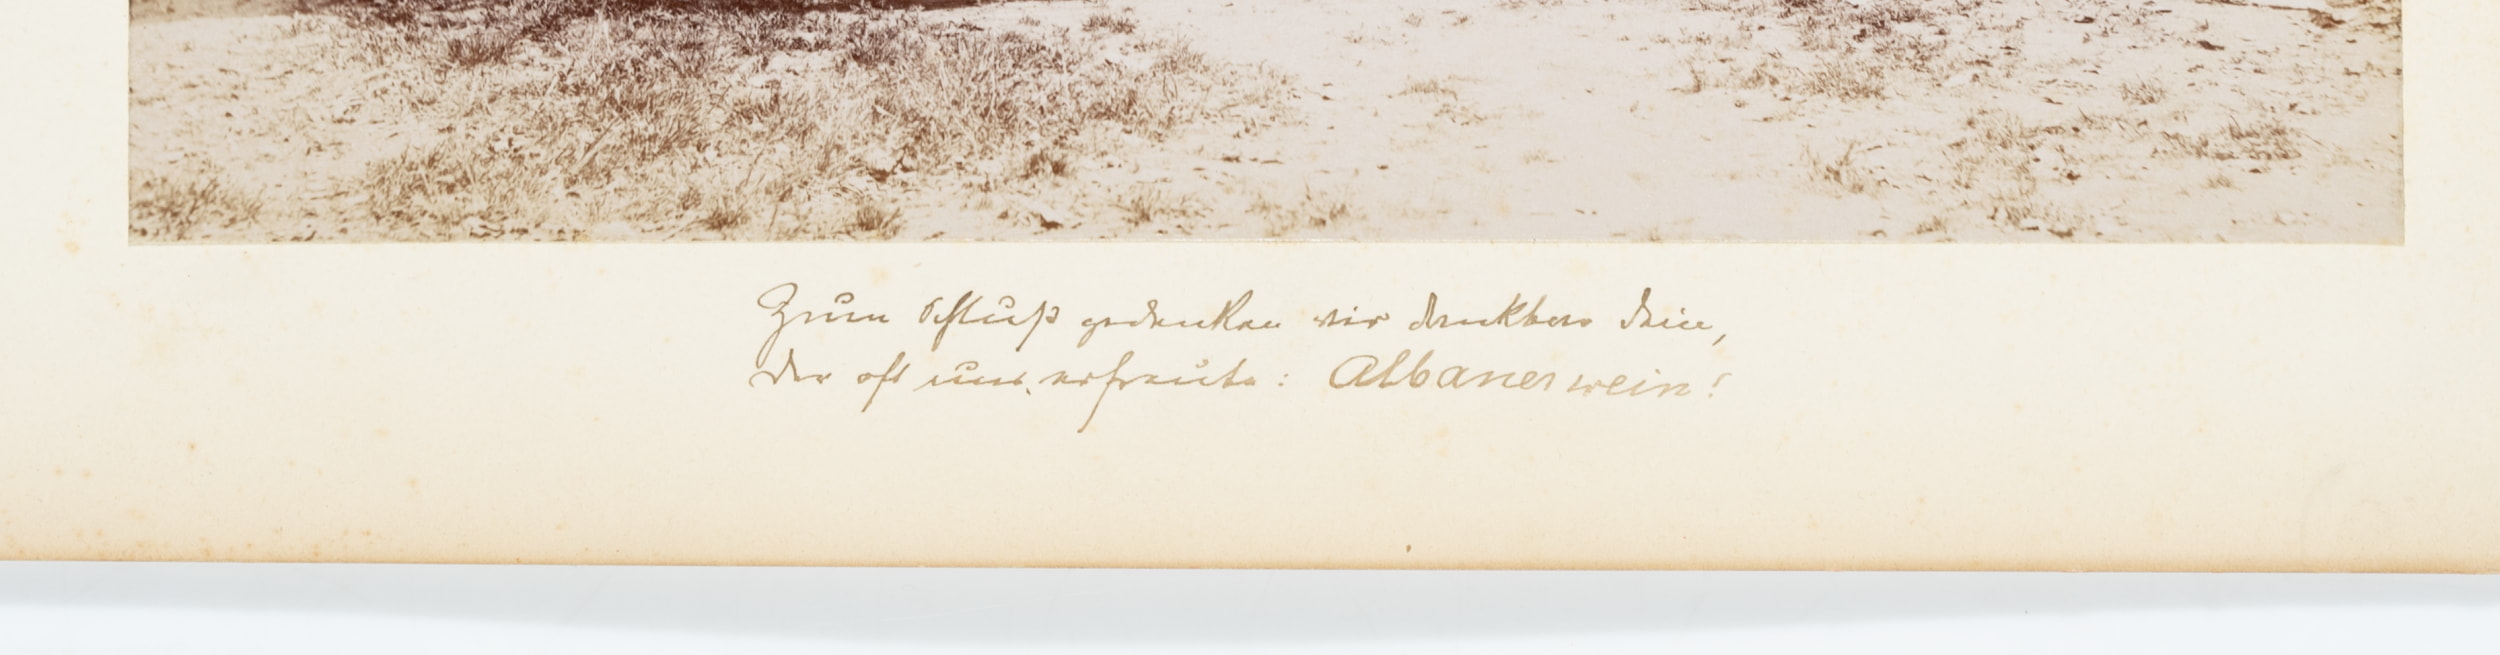 Zum Schluß gedenken wir dankbar Dein,
der oft uns erfreute: Albanerwein!